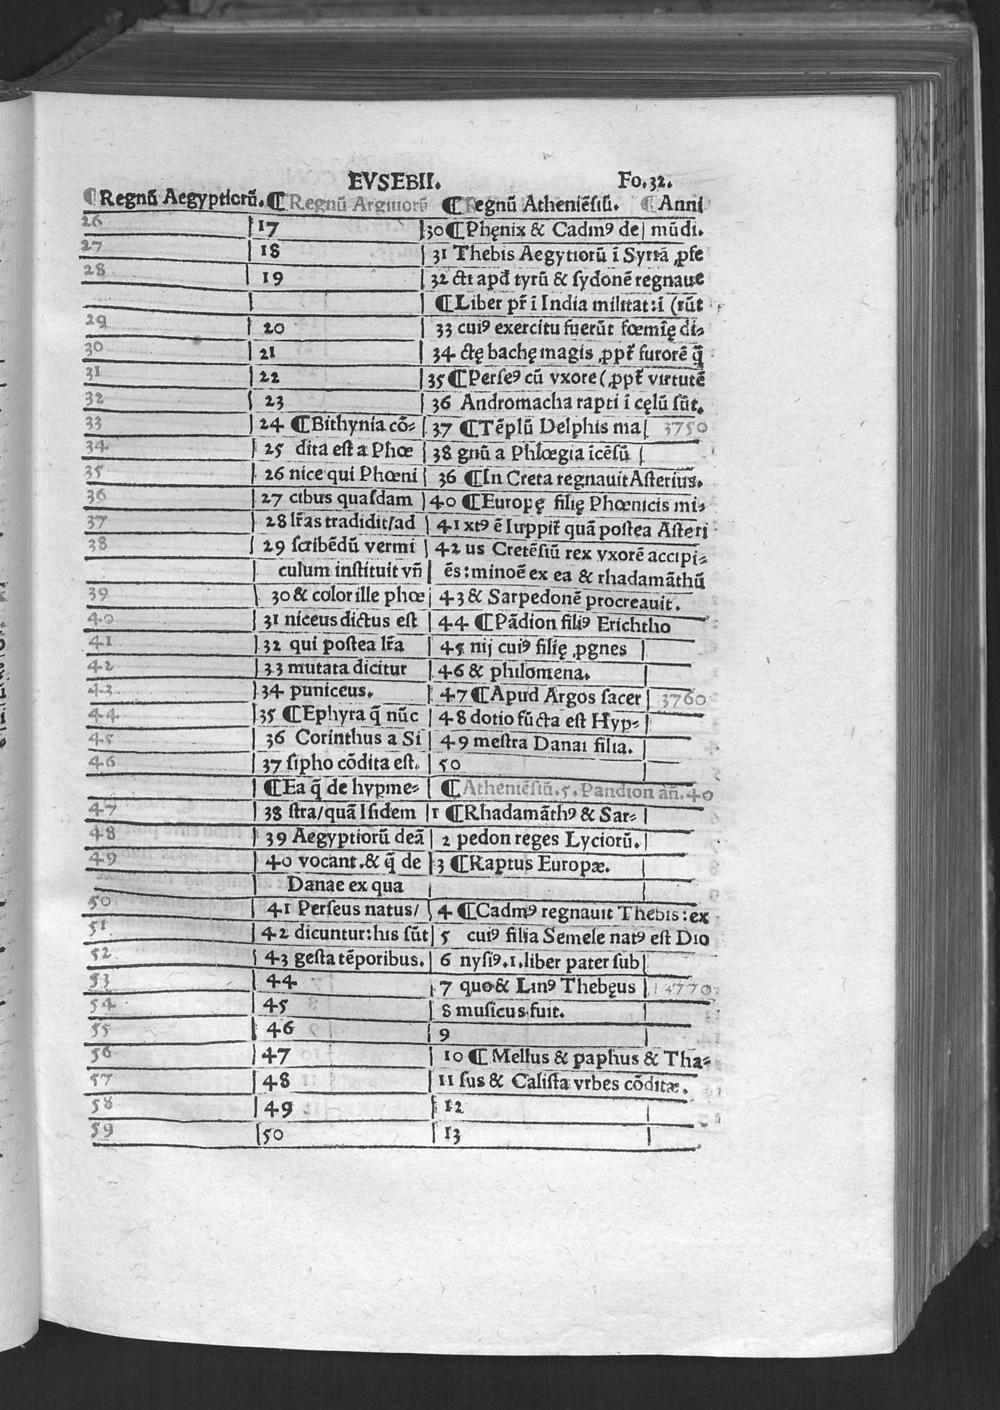 EVSEBII. Fo.32.
¶Regnũ Aegyptiorũ. ¶Regnũ Argiuorũ ¶Regnũ Atheniẽsiũ. ¶Anni
26 17 30 ¶Phęnix & Cadmꝰ de mũdi.
27 18 31 Thebis Aegytiorũ ĩ Syriã ꝓfe
28 19 32 cti apd̃ tyrũ & sydonẽ regnaue
¶Liber pr̃ ĩ India militat:ĩ (rũt
29 20 33 cuiꝰ exercitu fuerũt fœmię di-
30 21 34 ctę bachę magis ꝓpt̃ furorẽ q̃
31 22 35 ¶Perseꝰ cũ vxore (ꝓpt̃ virtutẽ
32 23 36 Andromacha rapti ĩ cęlũ sũt.
33 24 ¶Bithynia cõ- 37 ¶Tẽplũ Delphis ma 3750
34 25 dita est a Phœ 38 gnũ a Phlœgia ĩcẽsũ
35 26 nice qui Phœni 36 ¶In Creta regnauit Asterius.
36 27 cibus quasdam 40 ¶Europę filię Phœnicis mi-
37 28 lr̃as tradidit/ad 41 xtꝰ ẽ Iuppit̃ quã postea Asteri
38 29 scribẽdũ vermi 42 us Cretẽsiũ rex vxorẽ accipi-
culum instituit vñ ẽs:minoẽ ex ea & rhadamãthũ
39 30 & color ille phœ 43 & Sarpedonẽ procreauit.
40 31 niceus dictus est 44 ¶Pãdion filiꝰ Erichtho
41 32 qui postea lr̃a 45 nij cuiꝰ filię ꝓgnes
42 33 mutata dicitur 46 & philomena.
43 34 puniceus. 47 ¶Apud Argos sacer 3760
44 35 ¶Ephyra q̃ nũc 48 dotio fũcta est Hyp-
45 36 Corinthus a Si 49 mestra Danai filia.
46 37 sipho cõdita est. 50
¶Ea q̃ de hypme- ¶Atheniẽsiũ.5.Pandion añ.40
47 38 stra/quã Isidem 1 ¶Rhadamãthꝰ & Sar-
48 39 Aegyptiorũ deã 2 pedon reges Lyciorũ.
49 40 vocant.& q̃ de 3 ¶Raptus Europæ.
Danae ex qua
50 41 Perseus natus/ 4 ¶Cadmꝰ regnauit Thebis:ex
51 42 dicuntur:his sũt 5 cuiꝰ filia Semele natꝰ est Dio
52 43 gesta tẽporibus. 6 nysiꝰ.i.liber pater sub
53 44 7 quo & Linꝰ Thebęus 3770
54 45 8 musicus fuit.
55 46 9
56 47 10 ¶Mellus & paphus & Tha-
57 48 11 sus & Calista vrbes cõditæ.
58 49 12
59 50 13